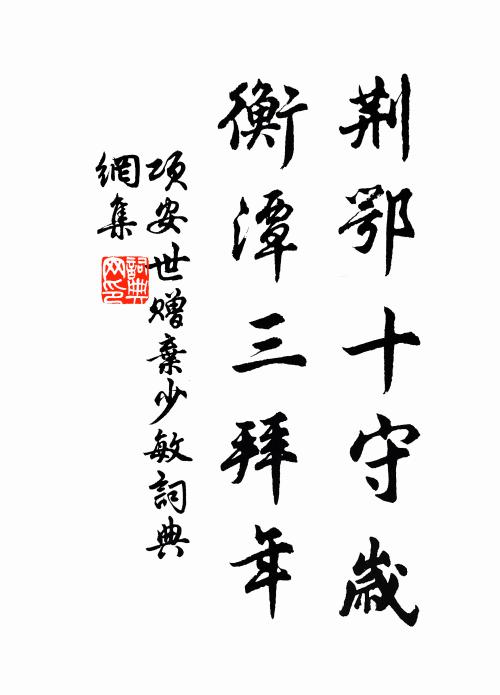 荆鄂十守歲
衡潭三拜年
項安世贈棄少敏詞典
網集
詞典網印